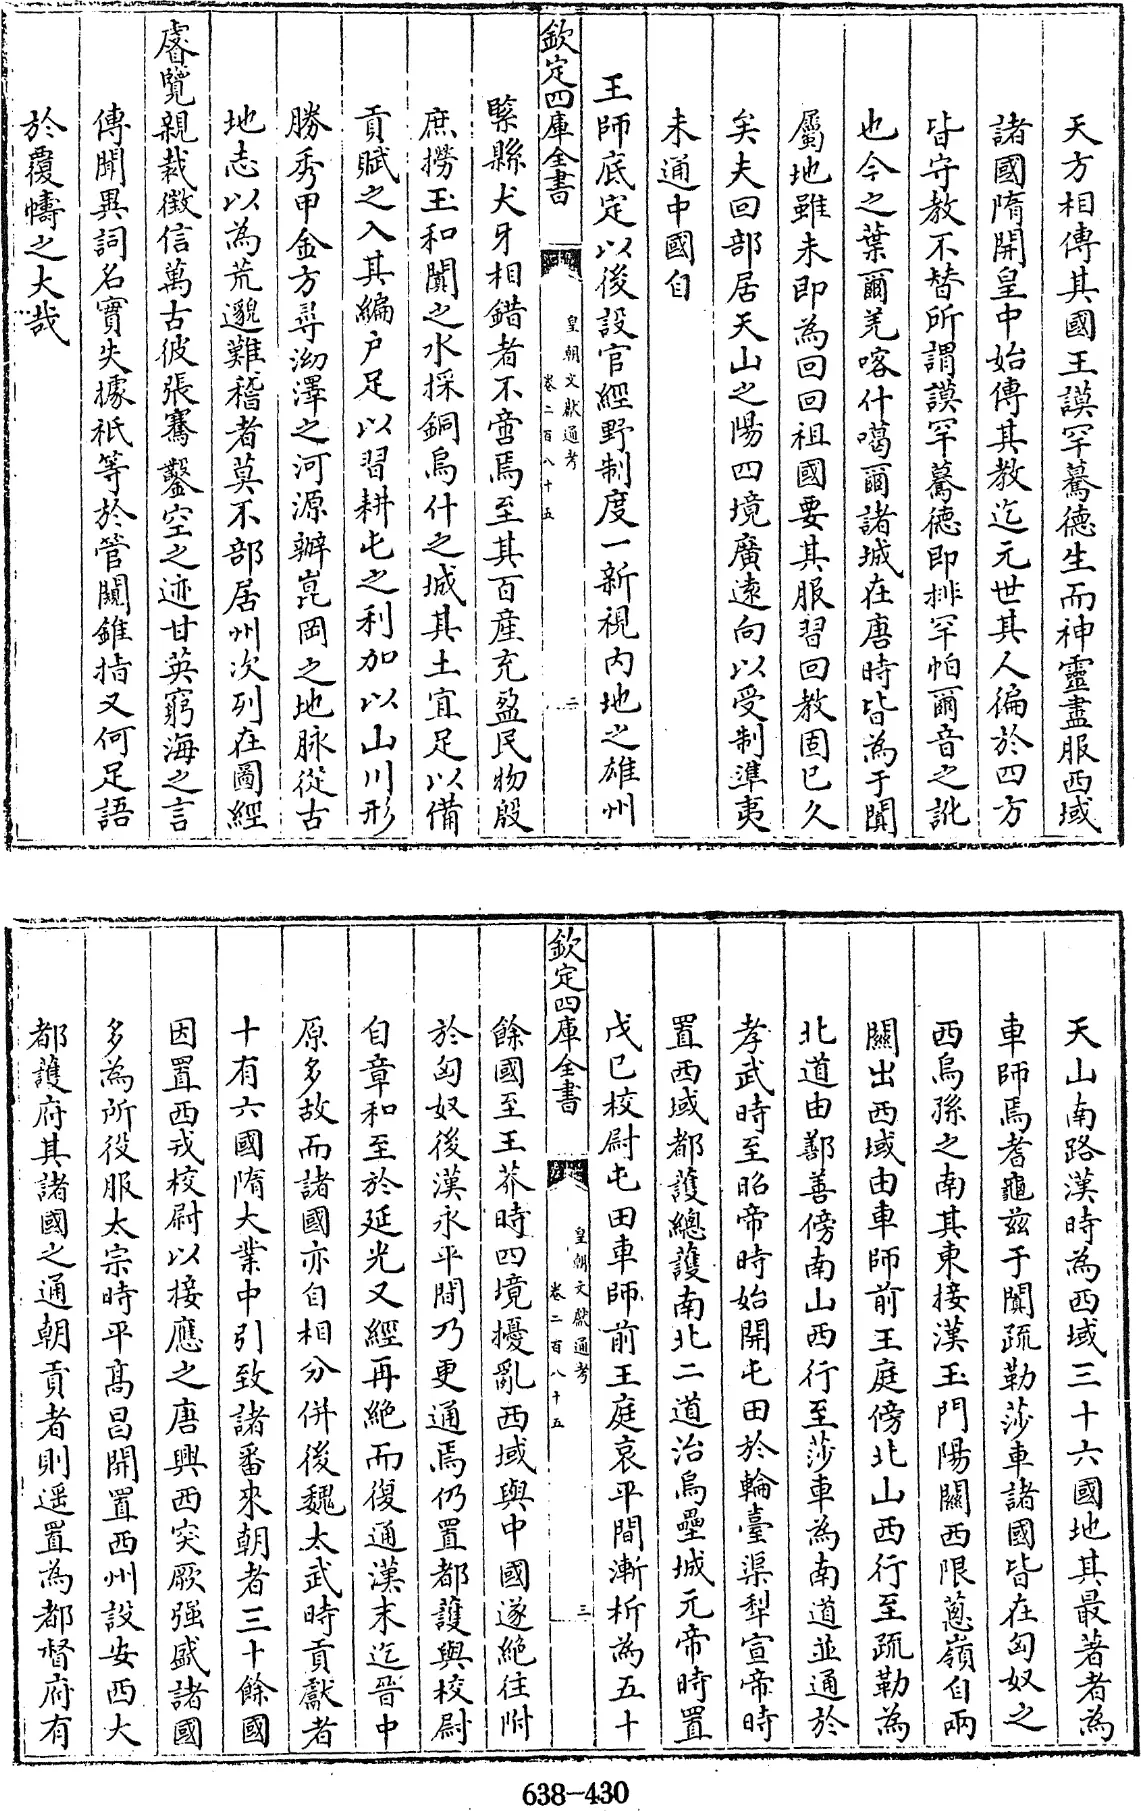 天方相傳其國王謨罕驀德生而神靈盡服西域
諸國隋開皇中始傳其教迄元世其人徧於四方
皆守教不替所謂謨罕驀德即排罕帕爾音之訛
也今之葉爾羌喀什噶爾諸城在唐時皆為于闐
屬地雖未即為回回祖國要其服習回教固已久
矣夫回部居天山之陽四境廣遠向以受制準夷
未通中國自
王師底定以後設官經野制度一新視内地之雄州
欽定四庫全書
皇朝文獻通考
卷二百八十五
二
緊縣犬牙相錯者不啻焉至其百産充盈民物殷
庶撈玉和闐之水採銅烏什之城其土宜足以備
貢賦之入其編户足以習耕屯之利加以山川形
勝秀甲金方尋泑澤之河源辦崑岡之地脉從古
地志以為荒邈難稽者莫不部居州次列在圖經
睿覽親裁徵信萬古彼張騫鑿空之迹甘英窮海之言
傳聞異詞名實失據祇等於管闚錐指又何足語
於覆幬之大哉
天山南路漢時為西域三十六國地其最著者為
車師焉耆龜兹于闐疏勒莎車諸國皆在匈奴之
西烏孫之南其東接漢玉門陽關西限蔥嶺自兩
關出西域由車師前王庭傍北山西行至疏勒為
北道由鄯善傍南山西行至莎車為南道並通於
孝武時至昭帝時始開屯田於輪臺渠犁宣帝時
置西域都護總護南北二道治烏壘城元帝時置
戊已校尉屯田車師前王庭哀平間漸析為五十
欽定四庫全書
皇朝文獻通考
卷二百八十五
三
餘國至王莽時四境擾亂西域與中國遂絶往附
於匈奴後漢永平間乃更通焉仍置都護與校尉
自章和至於延光又經再絶而復通漢末迄晉中
原多故而諸國亦自相分併後魏太武時貢獻者
十有六國隋大業中引致諸番來朝者三十餘國
因置西戎校尉以接應之唐興西突厥强盛諸國
多為所役服太宗時平髙昌開置西州設安西大
都護府其諸國之通朝貢者則遥置為都督府有
638-430